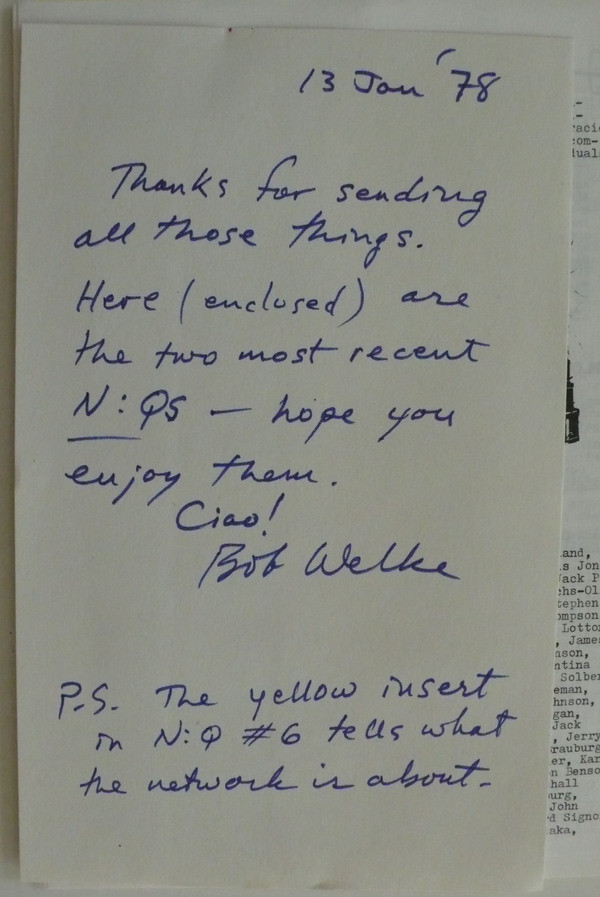 13 Jan '78
Thanks for sending
all those things.
Here (enclosed) are
the two most recent
N:QS — hope you
enjoy them.
Ciao!
Bob Welke
P.S. The yellow insert
in N:Q #6 tells what
the network is about.
and,
s Jon
Jack P
chs-Ol
tephen
ompson
Lotto
, James
nson,
ntina
Solber
eman,
hnson,
gan,
Jack
, Jerry
rauburg
er, Kar
n Benso
hall
urg,
John
d Signo
aka,